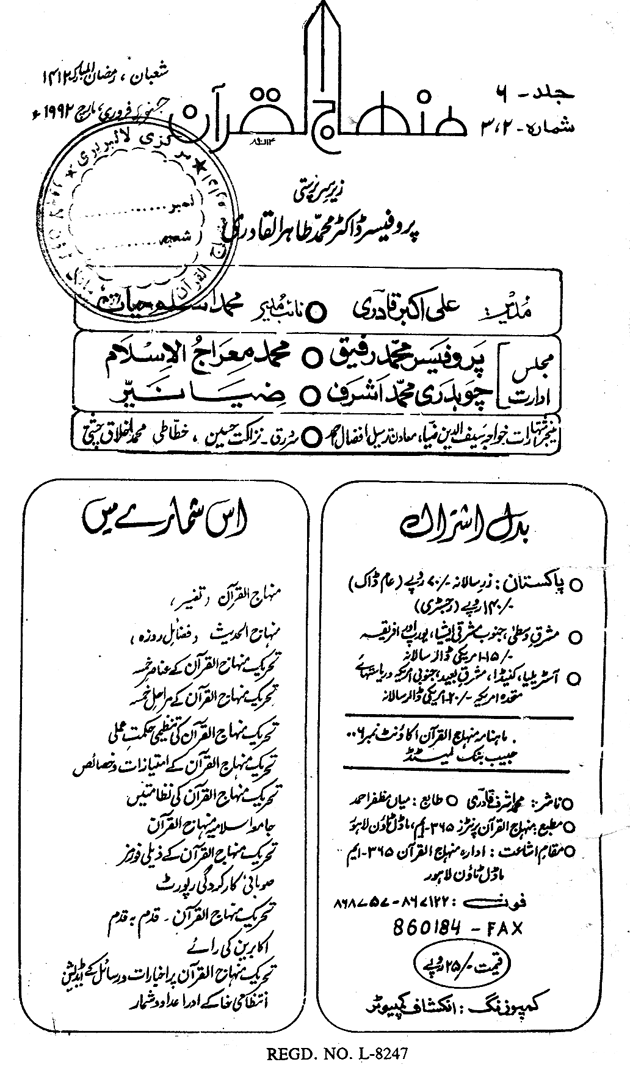 جلد - ۶
شمارہ - ۳،۲
منہاج القرآن
شعبان، رمضان المبارک ۱۴۱۲
جنوری، فروری، مارچ ۱۹۹۲ء
مرکزی لائبریری
نمبر
زیر سرپرستی
پروفیسر ڈاکٹر محمد طاہر القادری
مدیر: علی اکبر قادری ○ نائب مدیر محمد اسلم حیات
مجلس ادارت
پروفیسر محمد رفیق ○ محمد معراج الاسلام
چوہدری محمد اشرف ○ ضیا نیّر
منیجر اشتہارات خواجہ سیف الدین ضیاء، معاون ترسیل افضال احمد ○ سرورق - نزاکت حسین، خطاطی محمد اخلاق چشتی
بدل اشتراک
○ پاکستان: زر سالانہ ۷۰/- روپے (عام ڈاک)
۱۴۰/- روپے (رجسٹری)
○ مشرق وسطیٰ، جنوب مشرقی ایشیا، یورپ اور افریقہ
۱۵/- امریکی ڈالر سالانہ
○ آسٹریلیا، کینیڈا، مشرق بعید، جنوبی امریکہ و ریاستہائے
متحدہ امریکہ ۲۰/- امریکی ڈالر سالانہ
ماہنامہ منہاج القرآن اکاؤنٹ نمبر
حبیب بنک لمیٹڈ
○ ناشر: محمد اشرف قادری ○ طابع: میاں مظفر احمد
○ مطبع: منہاج القرآن پرنٹرز ۳۶۵-ایم، ماڈل ٹاؤن لاہور
○ مقام اشاعت: ادارہ منہاج القرآن ۳۶۵-ایم
ماڈل ٹاؤن لاہور
فون: ۸۶۷۱۲۲-۸۶۸۷۵۷
860184 - FAX
قیمت ۲۵/- روپے
کمپوزنگ: انکشاف کمپیوٹر
اس شمارے میں
منہاج القرآن (تفسیر)
منہاج الحدیث (فضائل روزہ)
تحریک منہاج القرآن کے عناصر خمسہ
تحریک منہاج القرآن کے مراحل خمسہ
تحریک منہاج القرآن کی تنظیمی حکمت عملی
تحریک منہاج القرآن کے امتیازات و خصائص
تحریک منہاج القرآن کی نظامتیں
جامعہ اسلامیہ منہاج القرآن
تحریک منہاج القرآن کے ذیلی فورمز
صوبائی کارکردگی رپورٹ
تحریک منہاج القرآن - قدم بہ قدم
اکابرین کی رائے
تحریک منہاج القرآن پر اخبارات و رسائل کے ایڈیشن
انتظامی خاکے اور اعداد و شمار
REGD. NO. L-8247